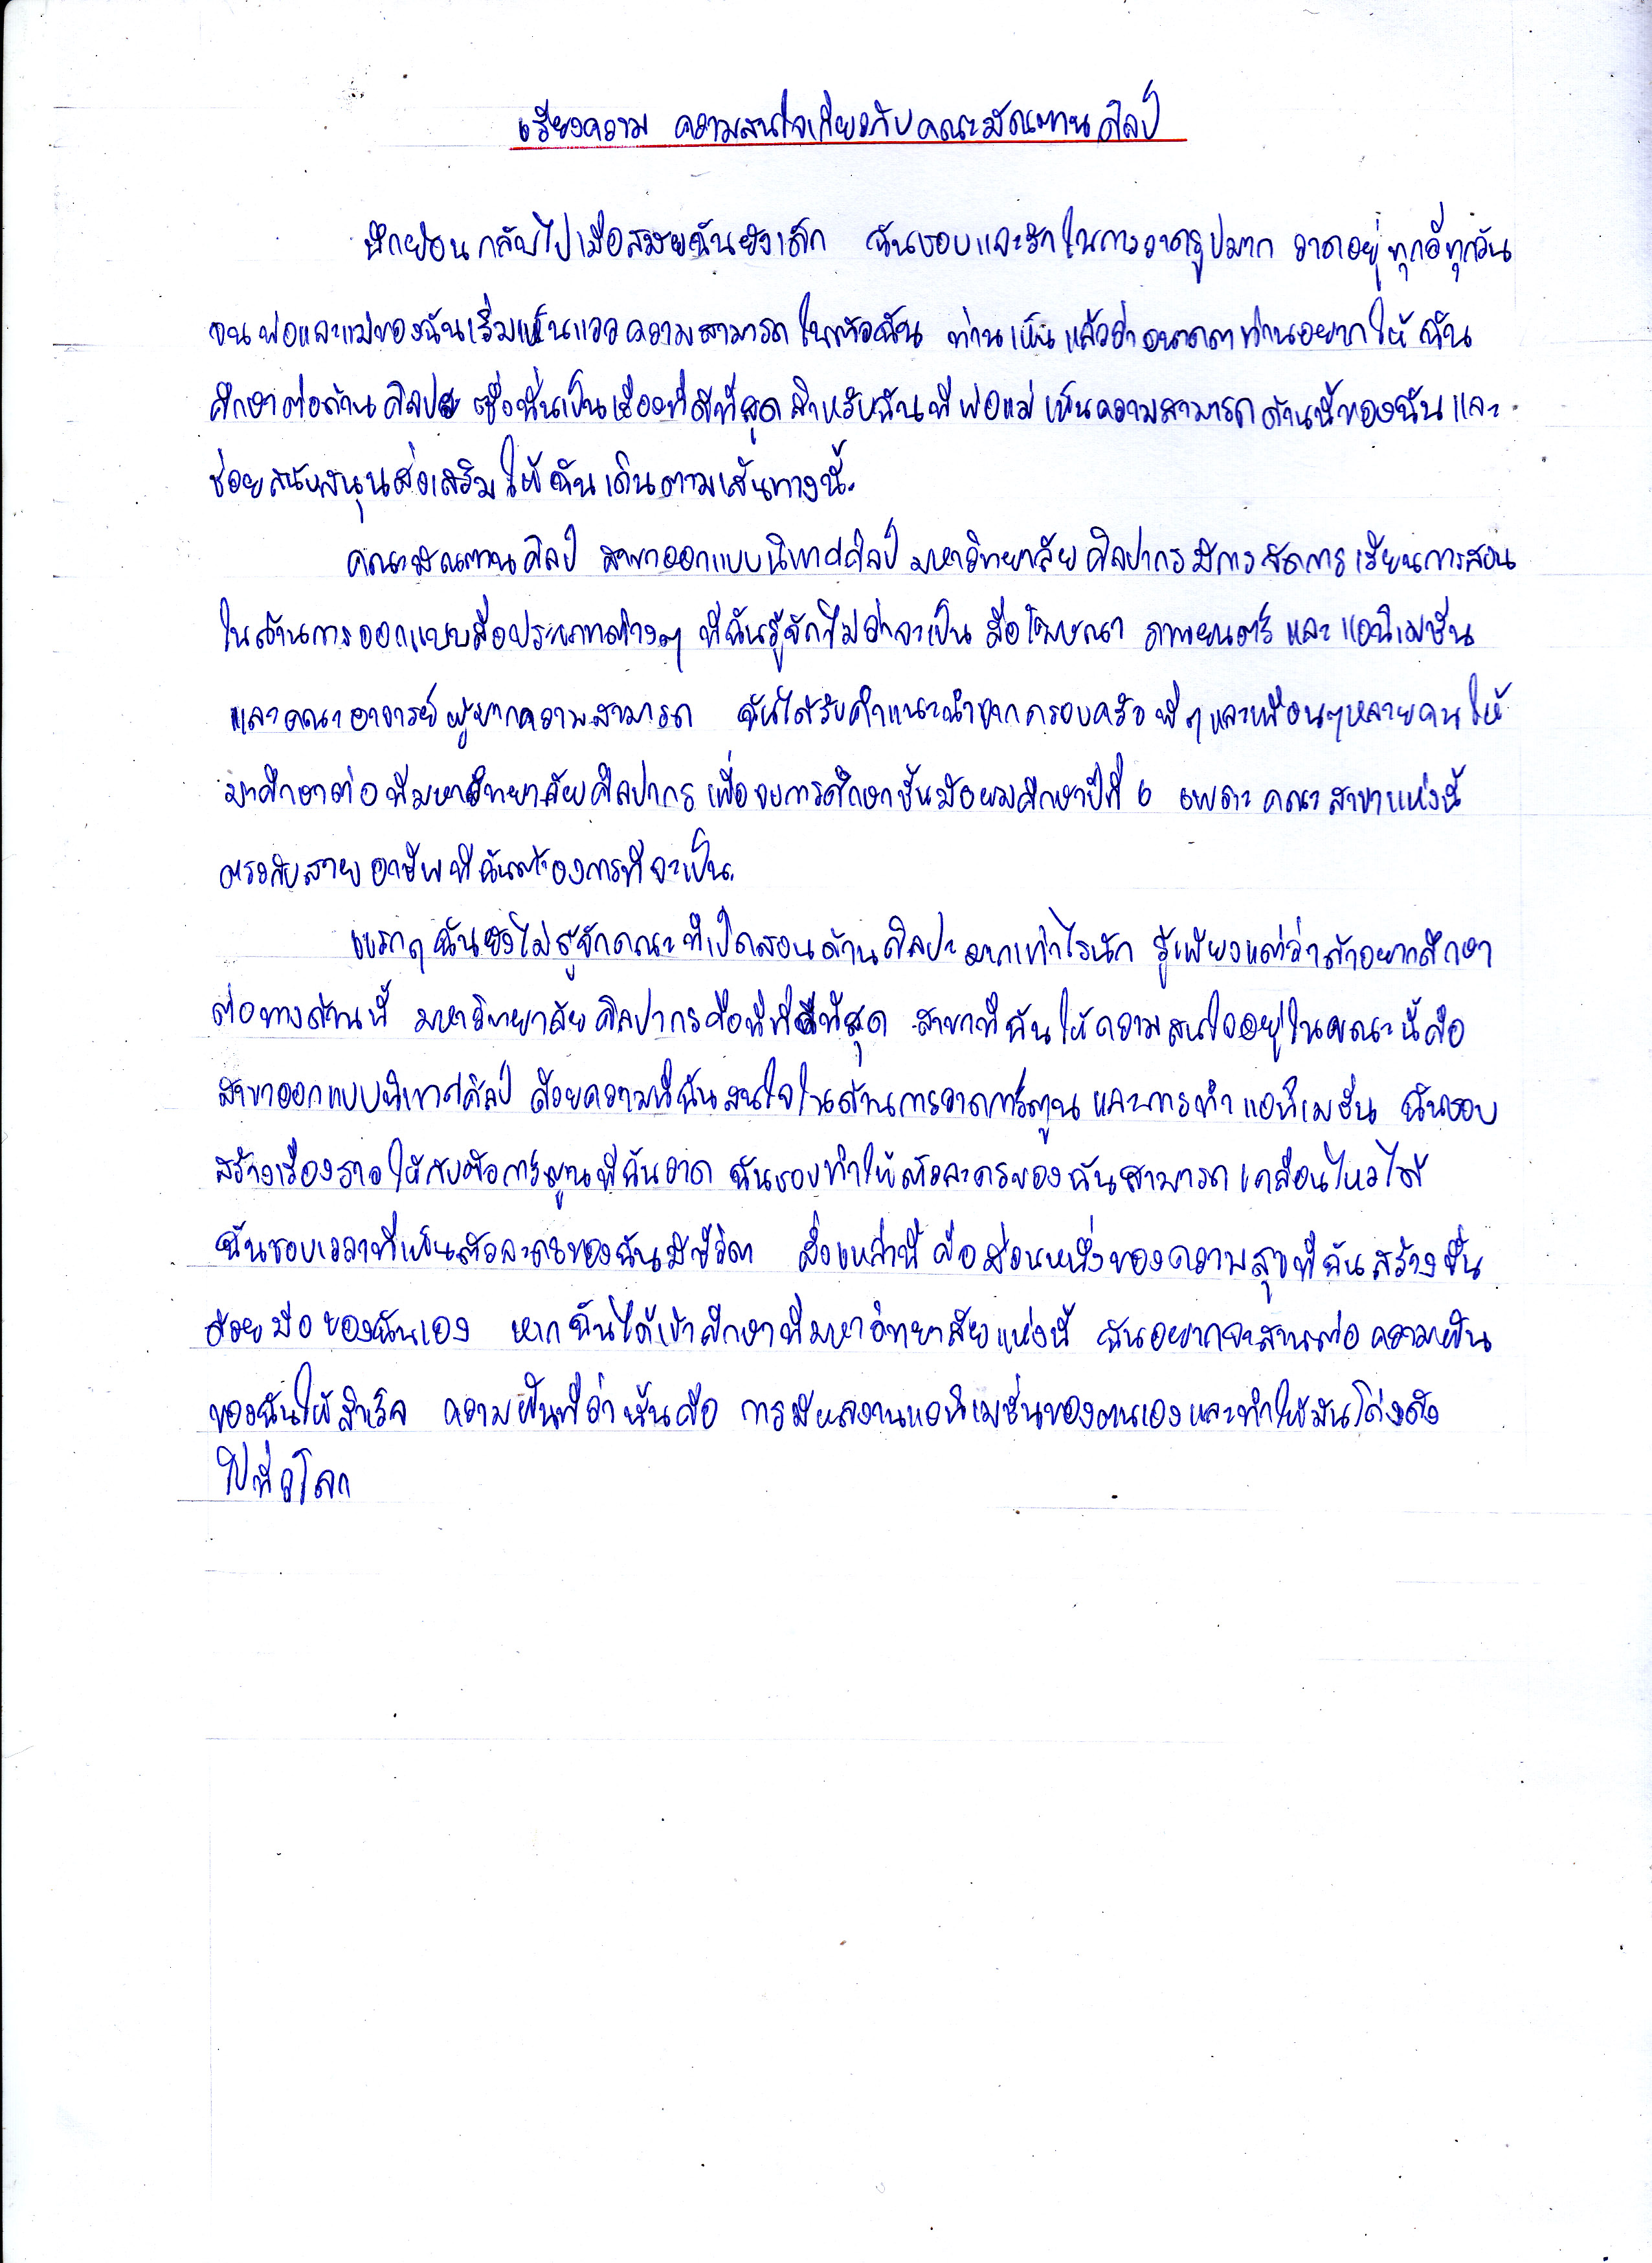 เรียงความ ความสนใจเกี่ยวกับคณะมัณฑนศิลป์
นึกย้อนกลับไปเมื่อสมัยฉันยังเด็ก ฉันชอบและรักในการวาดรูปมาก วาดอยู่ทุกวี่ทุกวัน
จนพ่อและแม่ของฉันเริ่มเห็นแววความสามารถในตัวฉัน ท่านเห็นแล้วว่าอนาคตท่านอยากให้ฉัน
ศึกษาต่อด้านศิลปะ ซึ่งนั่นเป็นเรื่องที่ดีที่สุดสำหรับฉันที่พ่อแม่เห็นความสามารถด้านนี้ของฉันและ
ช่วยสนับสนุนส่งเสริมให้ฉันเดินตามเส้นทางนี้.
คณะมัณฑนศิลป์ สาขาออกแบบนิเทศศิลป์ มหาวิทยาลัยศิลปากร มีการจัดการเรียนการสอน
ในด้านการออกแบบสื่อประเภทต่างๆ ที่ฉันรู้จักไม่ว่าจะเป็น สื่อโฆษณา ภาพยนตร์ และ แอนิเมชั่น
และคณะอาจารย์ผู้มากความสามารถ ฉันได้รับคำแนะนำจากครอบครัว พี่ๆและเพื่อนๆหลายคนให้
มาศึกษาต่อที่มหาวิทยาลัยศิลปากร เมื่อจบการศึกษาชั้นมัธยมศึกษาปีที่ 6 เพราะ คณะ สาขาแห่งนี้
ตรงกับสายอาชีพที่ฉันต้องการที่จะเป็น.
แรกๆ ฉันยังไม่รู้จักคณะที่เปิดสอนด้านศิลปะมากเท่าไรนัก รู้เพียงแต่ว่าถ้าอยากศึกษา
ต่อทางด้านนี้ มหาวิทยาลัยศิลปากรคือที่ที่ดีที่สุด สาขาที่ฉันให้ความสนใจอยู่ในขณะนี้คือ
สาขาออกแบบนิเทศศิลป์ ด้วยความที่ฉันสนใจในด้านการวาดการ์ตูน และการทำแอนิเมชั่น ฉันชอบ
สร้างเรื่องราวให้กับตัวการ์ตูนที่ฉันวาด ฉันชอบทำให้ตัวละครของฉันสามารถเคลื่อนไหวได้
ฉันชอบเวลาที่เห็นตัวละครของฉันมีชีวิต สิ่งเหล่านี้คือส่วนหนึ่งของความสุขที่ฉันสร้างขึ้น
ด้วยมือของฉันเอง หากฉันได้เข้าศึกษาที่มหาวิทยาลัยแห่งนี้ ฉันอยากจะสานต่อความฝัน
ของฉันให้สำเร็จ ความฝันที่ว่านั้นคือ การมีผลงานแอนิเมชั่นของตนเองและทำให้มันโด่งดัง
ไปทั่วโลก